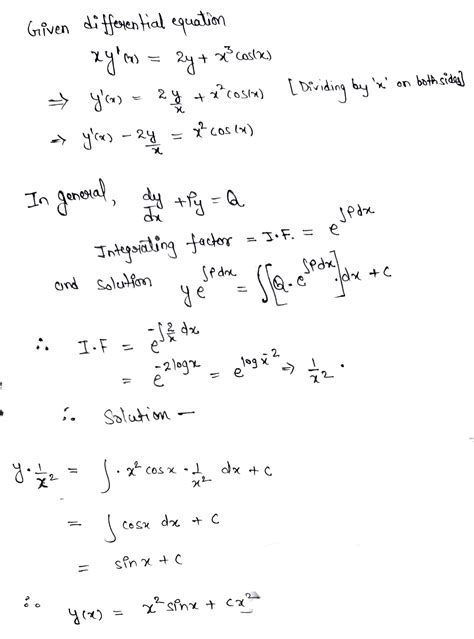 Given differential equation
xy'(x) = 2y + x³cos(x)
⇒ y'(x) = 2y/x + x²cos(x) [Dividing by 'x' on both sides]
⇒ y'(x) - 2y/x = x²cos(x)
In general, dy/dx + Py = Q
Integrating factor = I.F. = e^∫Pdx
and solution ye^∫Pdx = ∫[Q.e^∫Pdx]dx + C
∴ I.F = e^-∫2/x dx
= e^-2logx = e^logx^-2 ⇒ 1/x².
∴ Solution –
y·1/x² = ∫·x²cosx·1/x² dx + C
= ∫cosx dx + C
= sinx + C
∴ y(x) = x²sinx + Cx²